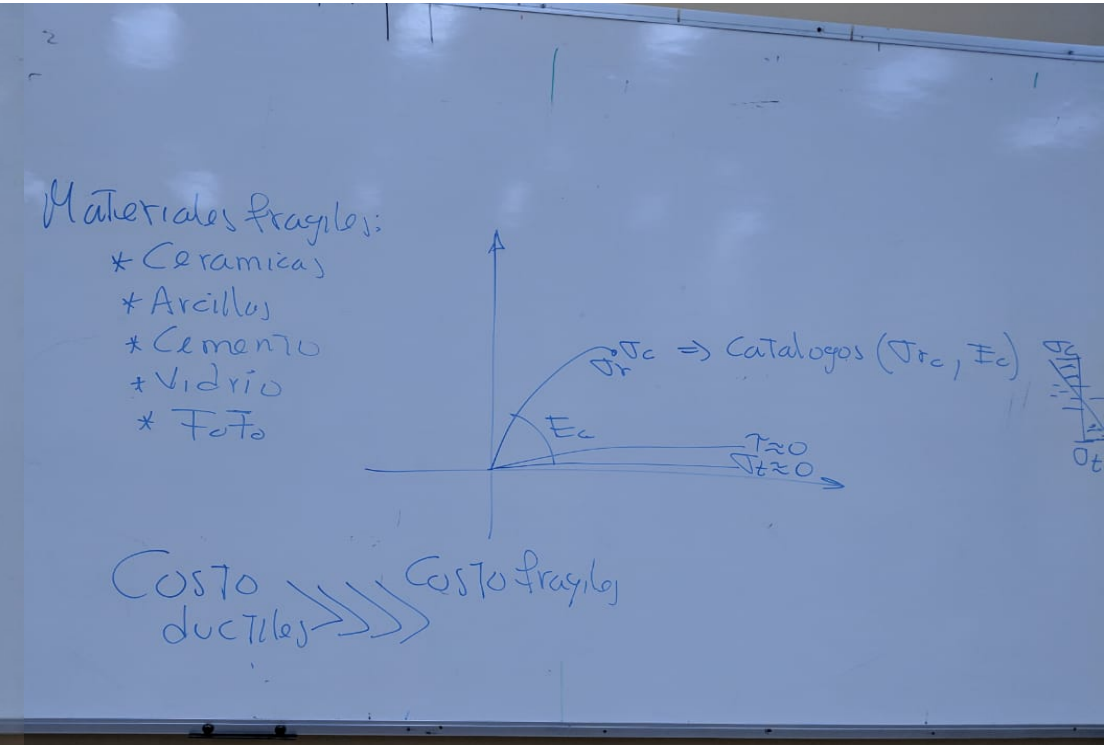 Materiales fragiles:
* Ceramicas
* Arcillas
* Cemento
* Vidrio
* FoFo
σc ⇒ Catalogos (σrc, Ec)
σr
Ec
τ≈0
σt≈0
σc
σt
Costo >>>> Costo fragiles
ductiles